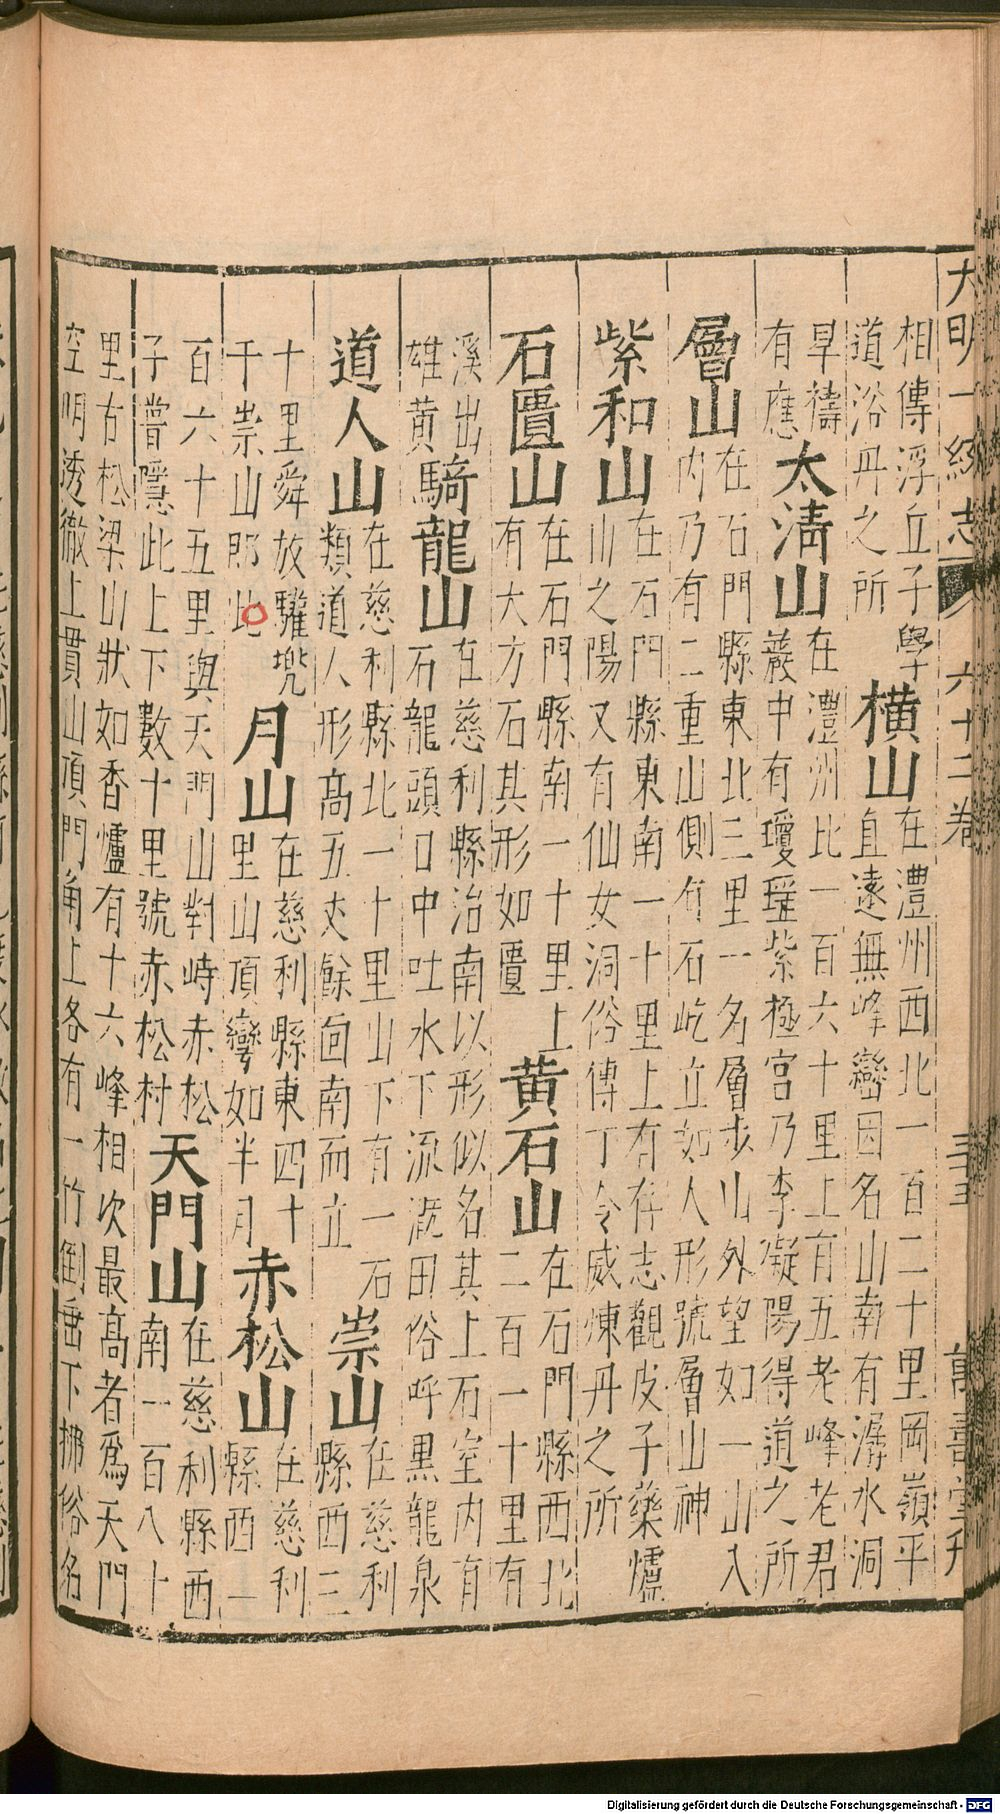 大明一統志 六十二卷 萬壽堂刋
相傳浮丘子學
道浴丹之所
橫山
在澧州西北一百二十里岡嶺平
直遠無峰巒因名山南有潺水洞
旱禱
有應
太清山
在澧州北一百六十里上有五老峰老君
巖中有瓊瑶紫極宫乃李凝陽得道之所
層山
在石門縣東北三里一名層步山外望如一山入
内乃有二重山側有石屹立如人形號層山神
紫和山
在石門縣東南一十里上有存志觀皮子藥爐
山之陽又有仙女洞俗傳丁令威煉丹之所
石匱山
在石門縣南一十里上
有大方石其形如匱
黄石山
在石門縣西北
二百一十里有
溪出
雄黄
騎龍山
在慈利縣治南以形似名其上石室内有
石龍頭口中吐水下流溉田俗呼黒龍泉
道人山
在慈利縣北一十里山下有一石
類道人形髙五丈餘面南而立
崇山
在慈利
縣西三
十里舜放驩兠
于崇山即此
月山
在慈利縣東四十
里山頂彎如半月
赤松山
在慈利
縣西一
百六十五里與天門山對峙赤松
子嘗隱此上下數十里號赤松村
天門山
在慈利縣西
南一百八十
里古松梁山狀如香爐有十六峰相次最髙者爲天門
空明透徹上貫山頂門角上各有一竹倒垂下拂俗名
Digitalisierung gefördert durch die Deutsche Forschungsgemeinschaft - DFG